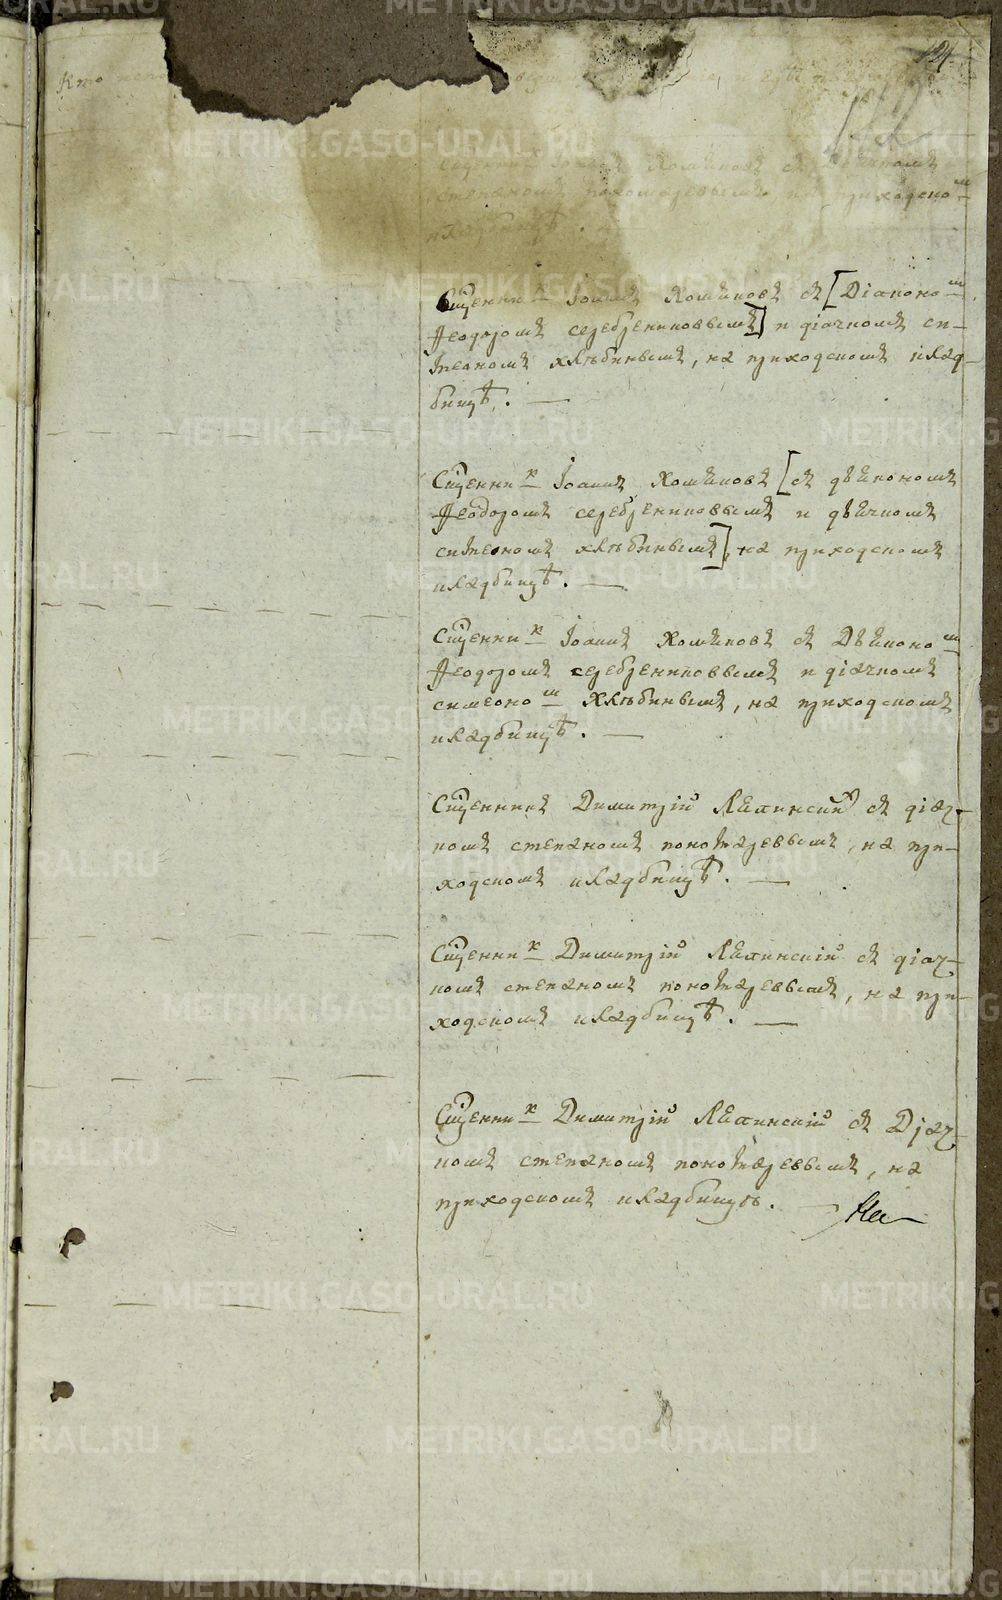 124
Кто испо
Священникъ Іоаннъ Хомяковъ съ дьячкомъ
степаномъ пономаревымъ, на приходском
кладбищѣ.
Священник Іоаннъ Хомяковъ съ [Діаконом
Ѳеодоромъ серебрениковымъ] и діачкомъ си-
меономъ хлѣбинымъ, на приходскомъ клад-
бищѣ. —
Священник Іоаннъ Хомяковъ [съ дьякономъ
Ѳеодоромъ серебрениковымъ и дьячкомъ
симеономъ хлѣбинымъ], на приходскомъ
кладбищѣ. —
Священник Іоаннъ Хомяковъ съ Дьяконом
Ѳеодоромъ серебрениковымъ и діачкомъ
симеоном Хлѣбинымъ, на приходскомъ
кладбищѣ. —
Священникъ Димитрій Ляпинскій съ діач-
комъ степаномъ пономаревымъ, на при-
ходскомъ кладбищѣ. —
Священник Димитрій Ляпинскій съ діач-
комъ степаномъ пономаревымъ, на при-
ходскомъ кладбищѣ. —
Священник Димитрій Ляпинскій съ Діач-
комъ степаномъ пономаревымъ, на
приходскомъ кладбищѣ. —
METRIKI.GASO-URAL.RU